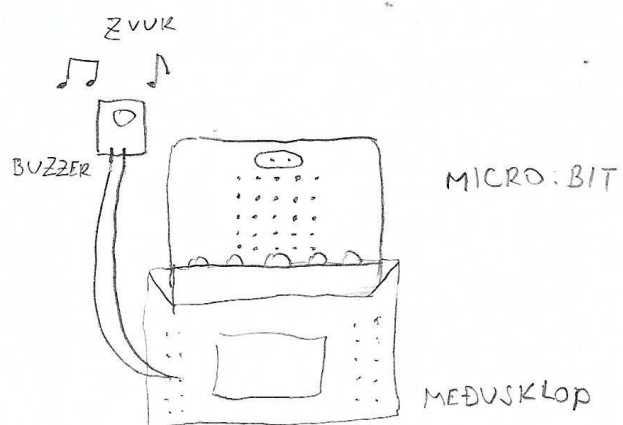 ZVUK
BUZZER
MICRO:BIT
MEĐUSKLOP